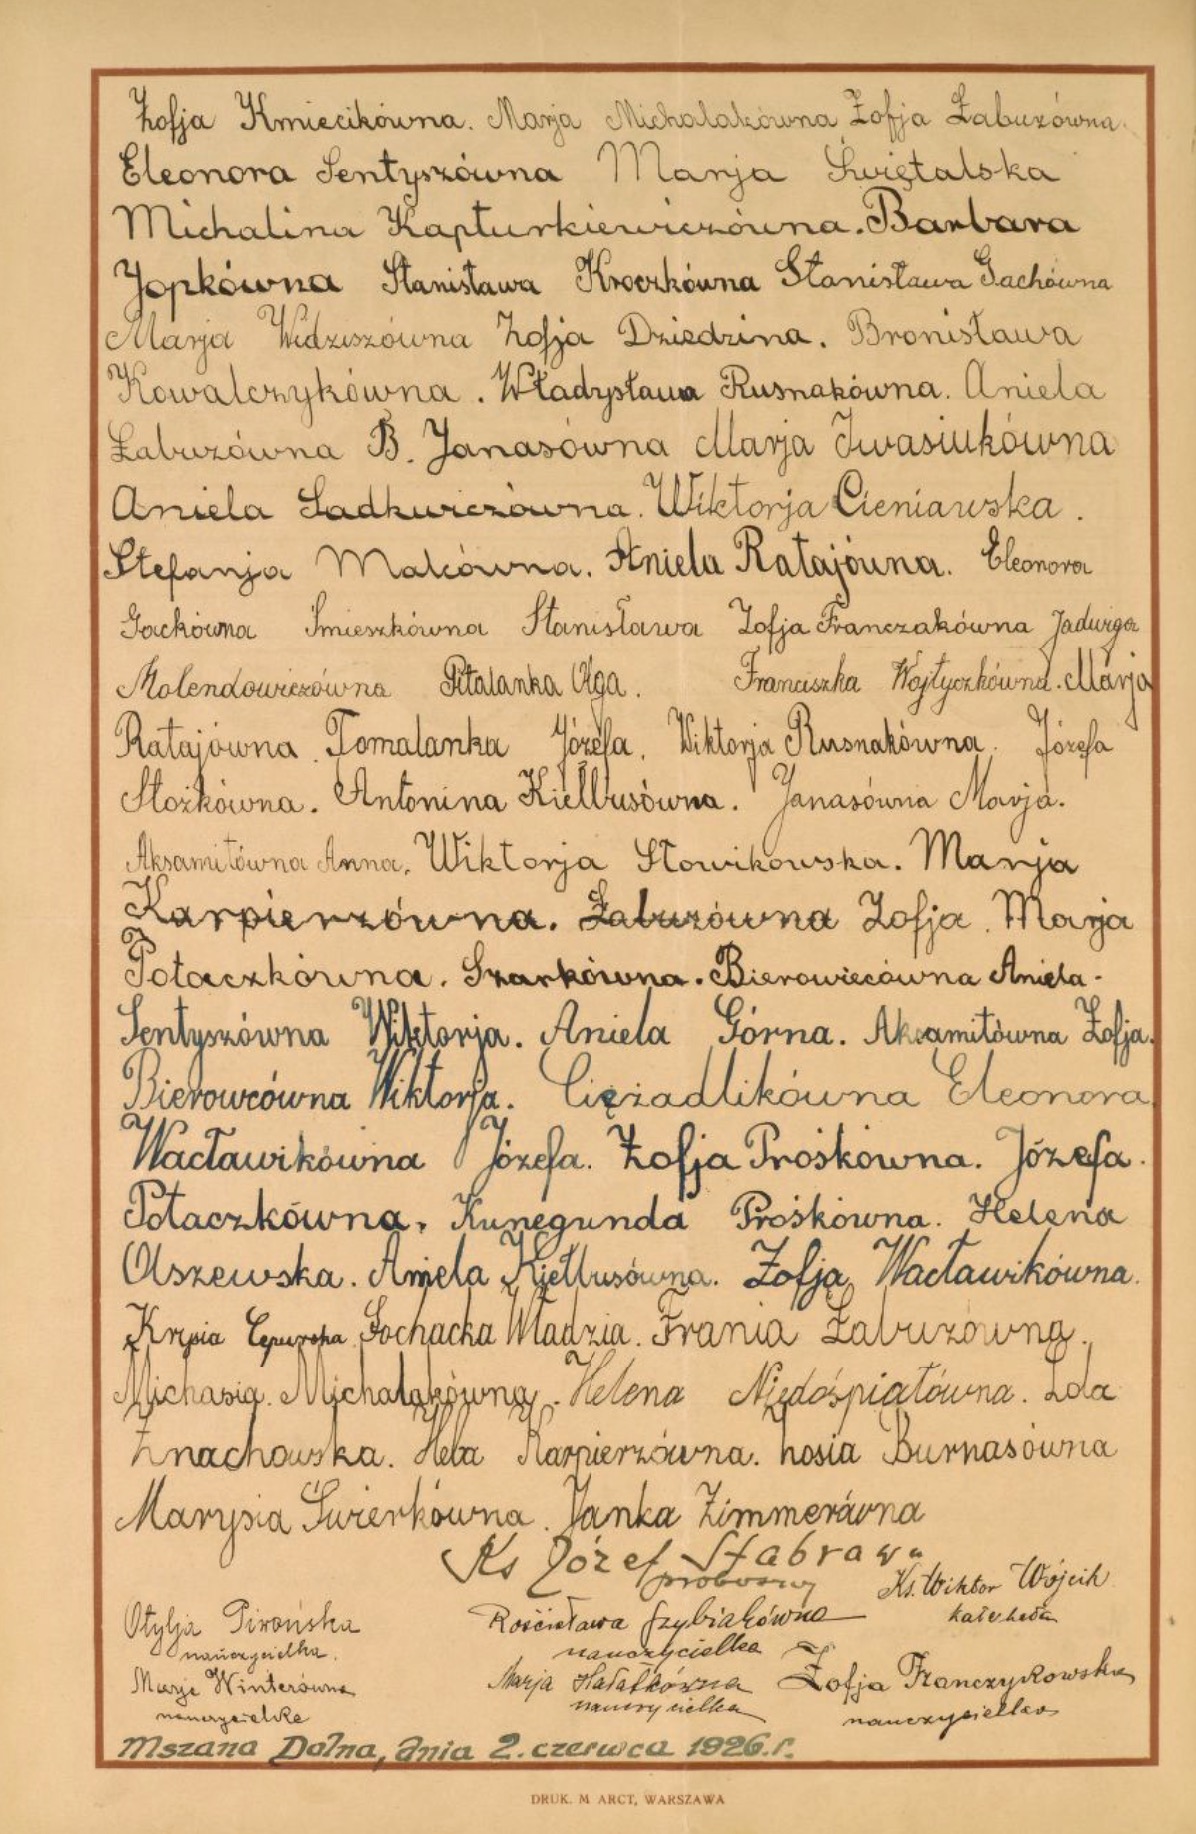 Zofja Kmiecikówna. Marja Michalakówna Zofja Łabuzówna
Eleonora Sentyszówna Marja Świętalska
Michalina Kapturkiewiczówna. Barbara
Jopkówna Stanisława Kroczkówna Stanisława Gachówna
Marja Widziszówna Zofja Dziedzina. Bronisława
Kowalczykówna. Władysława Rusnakówna. Aniela
Łabuzówna B. Janasówna Marja Iwasiukówna
Aniela Sadkiewiczówna. Wiktorja Cieniawska.
Stefanja Malcówna. Aniela Ratajówna. Eleonora
Gackówna Śmieszkówna Stanisława Zofja Franczakówna Jadwiga
Molendowiczówna Pitalanka Olga. Franciszka Wojtyczkówna. Marja
Ratajówna. Tomalanka Józefa. Wiktorja Rusnakówna. Józefa
Stożkówna. Antonina Kiełbusówna. Janasówna Marja.
Aksamitówna Anna. Wiktorja Słowikowska. Marja
Karpierzówna. Łabuzówna Zofja. Marja
Potaczkówna. Szarkówna. Bierowiecówna Aniela-
Sentyszówna Wiktorja. Aniela Górna. Aksamitówna Zofja.
Bierowcówna Wiktorja. Ciężadlikówna Eleonora
Wacławikówna Józefa. Zofja Prośkówna. Józefa.
Potaczkówna. Kunegunda Prośkówna. Helena
Olszewska. Aniela Kiełbusówna. Zofja Wacławikówna.
Krysia Sochacka Władzia. Frania Łabuzówna.
Michasia. Michalakówna. Helena Niedośpiałówna. Lola
Znachowska. Hela Karpierzówna. Zosia Burnasówna
Marysia Świerkówna. Janka Zimmerówna
Ks Józef Stabrawa
proboszcz Ks. Wiktor Wójcik
Otylja Pirońska Rościsława Szybiakówna katecheta
nauczycielka. nauczycielka
Marja Winterówna Marja Hałatkówna Zofja Franczykowska
nauczycielka nauczycielka nauczycielka
Mszana Dolna, dnia 2. czerwca 1926.r.
DRUK. M ARCT, WARSZAWA